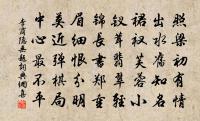 照梁初有情
出水舊知名
裙衩芙蓉小
釵茸翡翠輕
錦長書鄭重
眉細恨分明
莫近彈棋局
中心最不平
李商隱無題詞典網